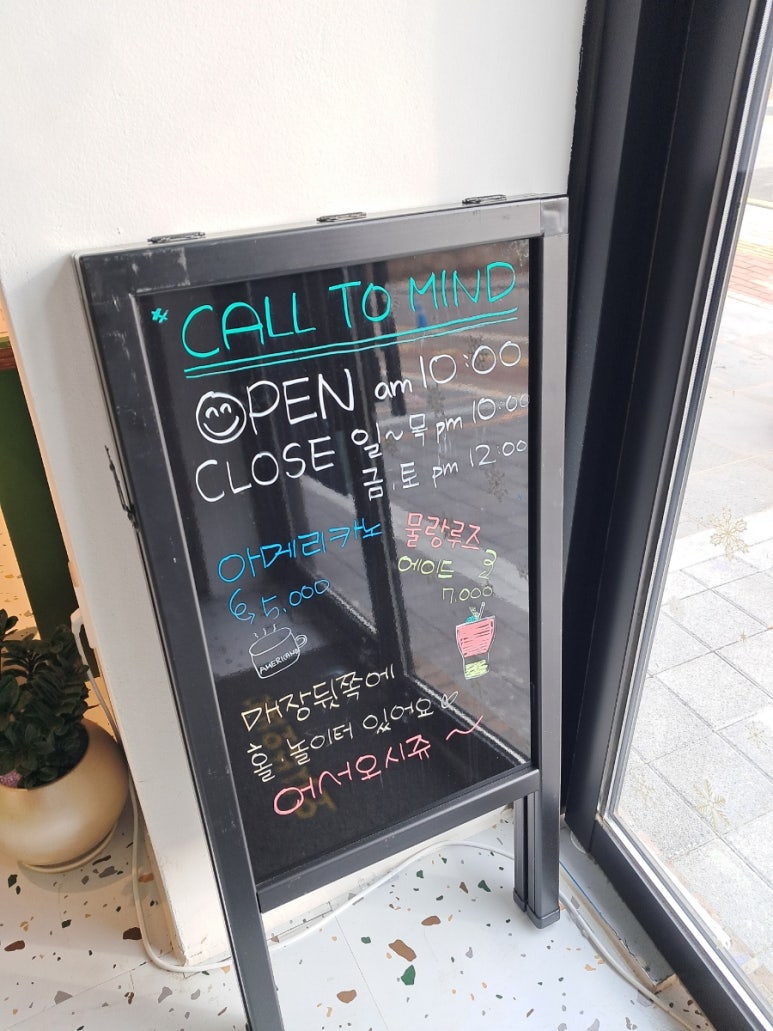 CALL TO MIND
OPEN am 10:00
CLOSE 일~목 pm 10:00
금,토 pm 12:00
아메리카노
5,000
AMERICANO
물랑루즈
에이드
7,000
매장뒷쪽에
홀·놀이터 있어요
어서오시쥬~